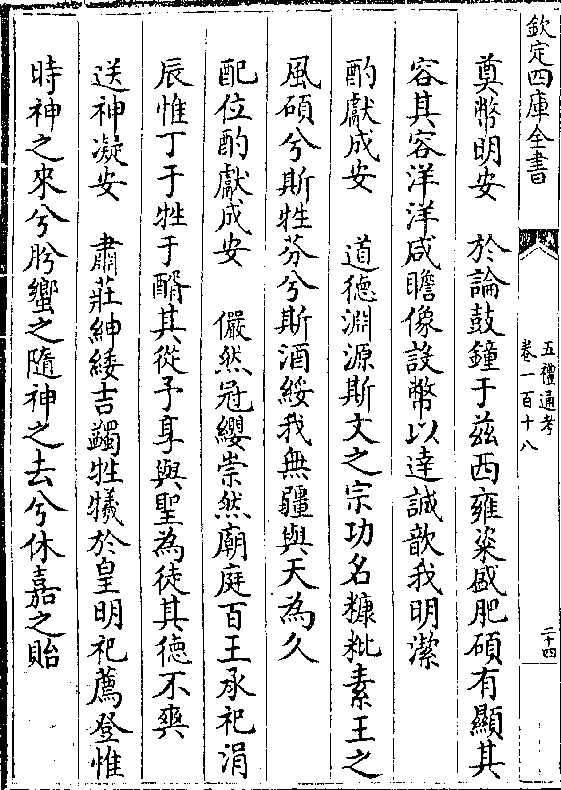 欽定四庫全書
五禮通考
卷一百十八
二十四
奠幣明安　於論鼓鐘于兹西雍粢盛肥碩有顯其
容其容洋洋咸瞻像設幣以達誠歆我明潔
酌獻成安　道德淵源斯文之宗功名糠粃素王之
風碩兮斯牲芬兮斯酒綏我無疆與天為久
配位酌獻成安　儼然冠纓崇然廟庭百王承祀涓
辰惟丁于牲于醑其從予享與聖為徒其德不爽
送神凝安　肅莊紳緌吉蠲牲犧於皇明祀薦登惟
時神之來兮肸蠁之隨神之去兮休嘉之貽